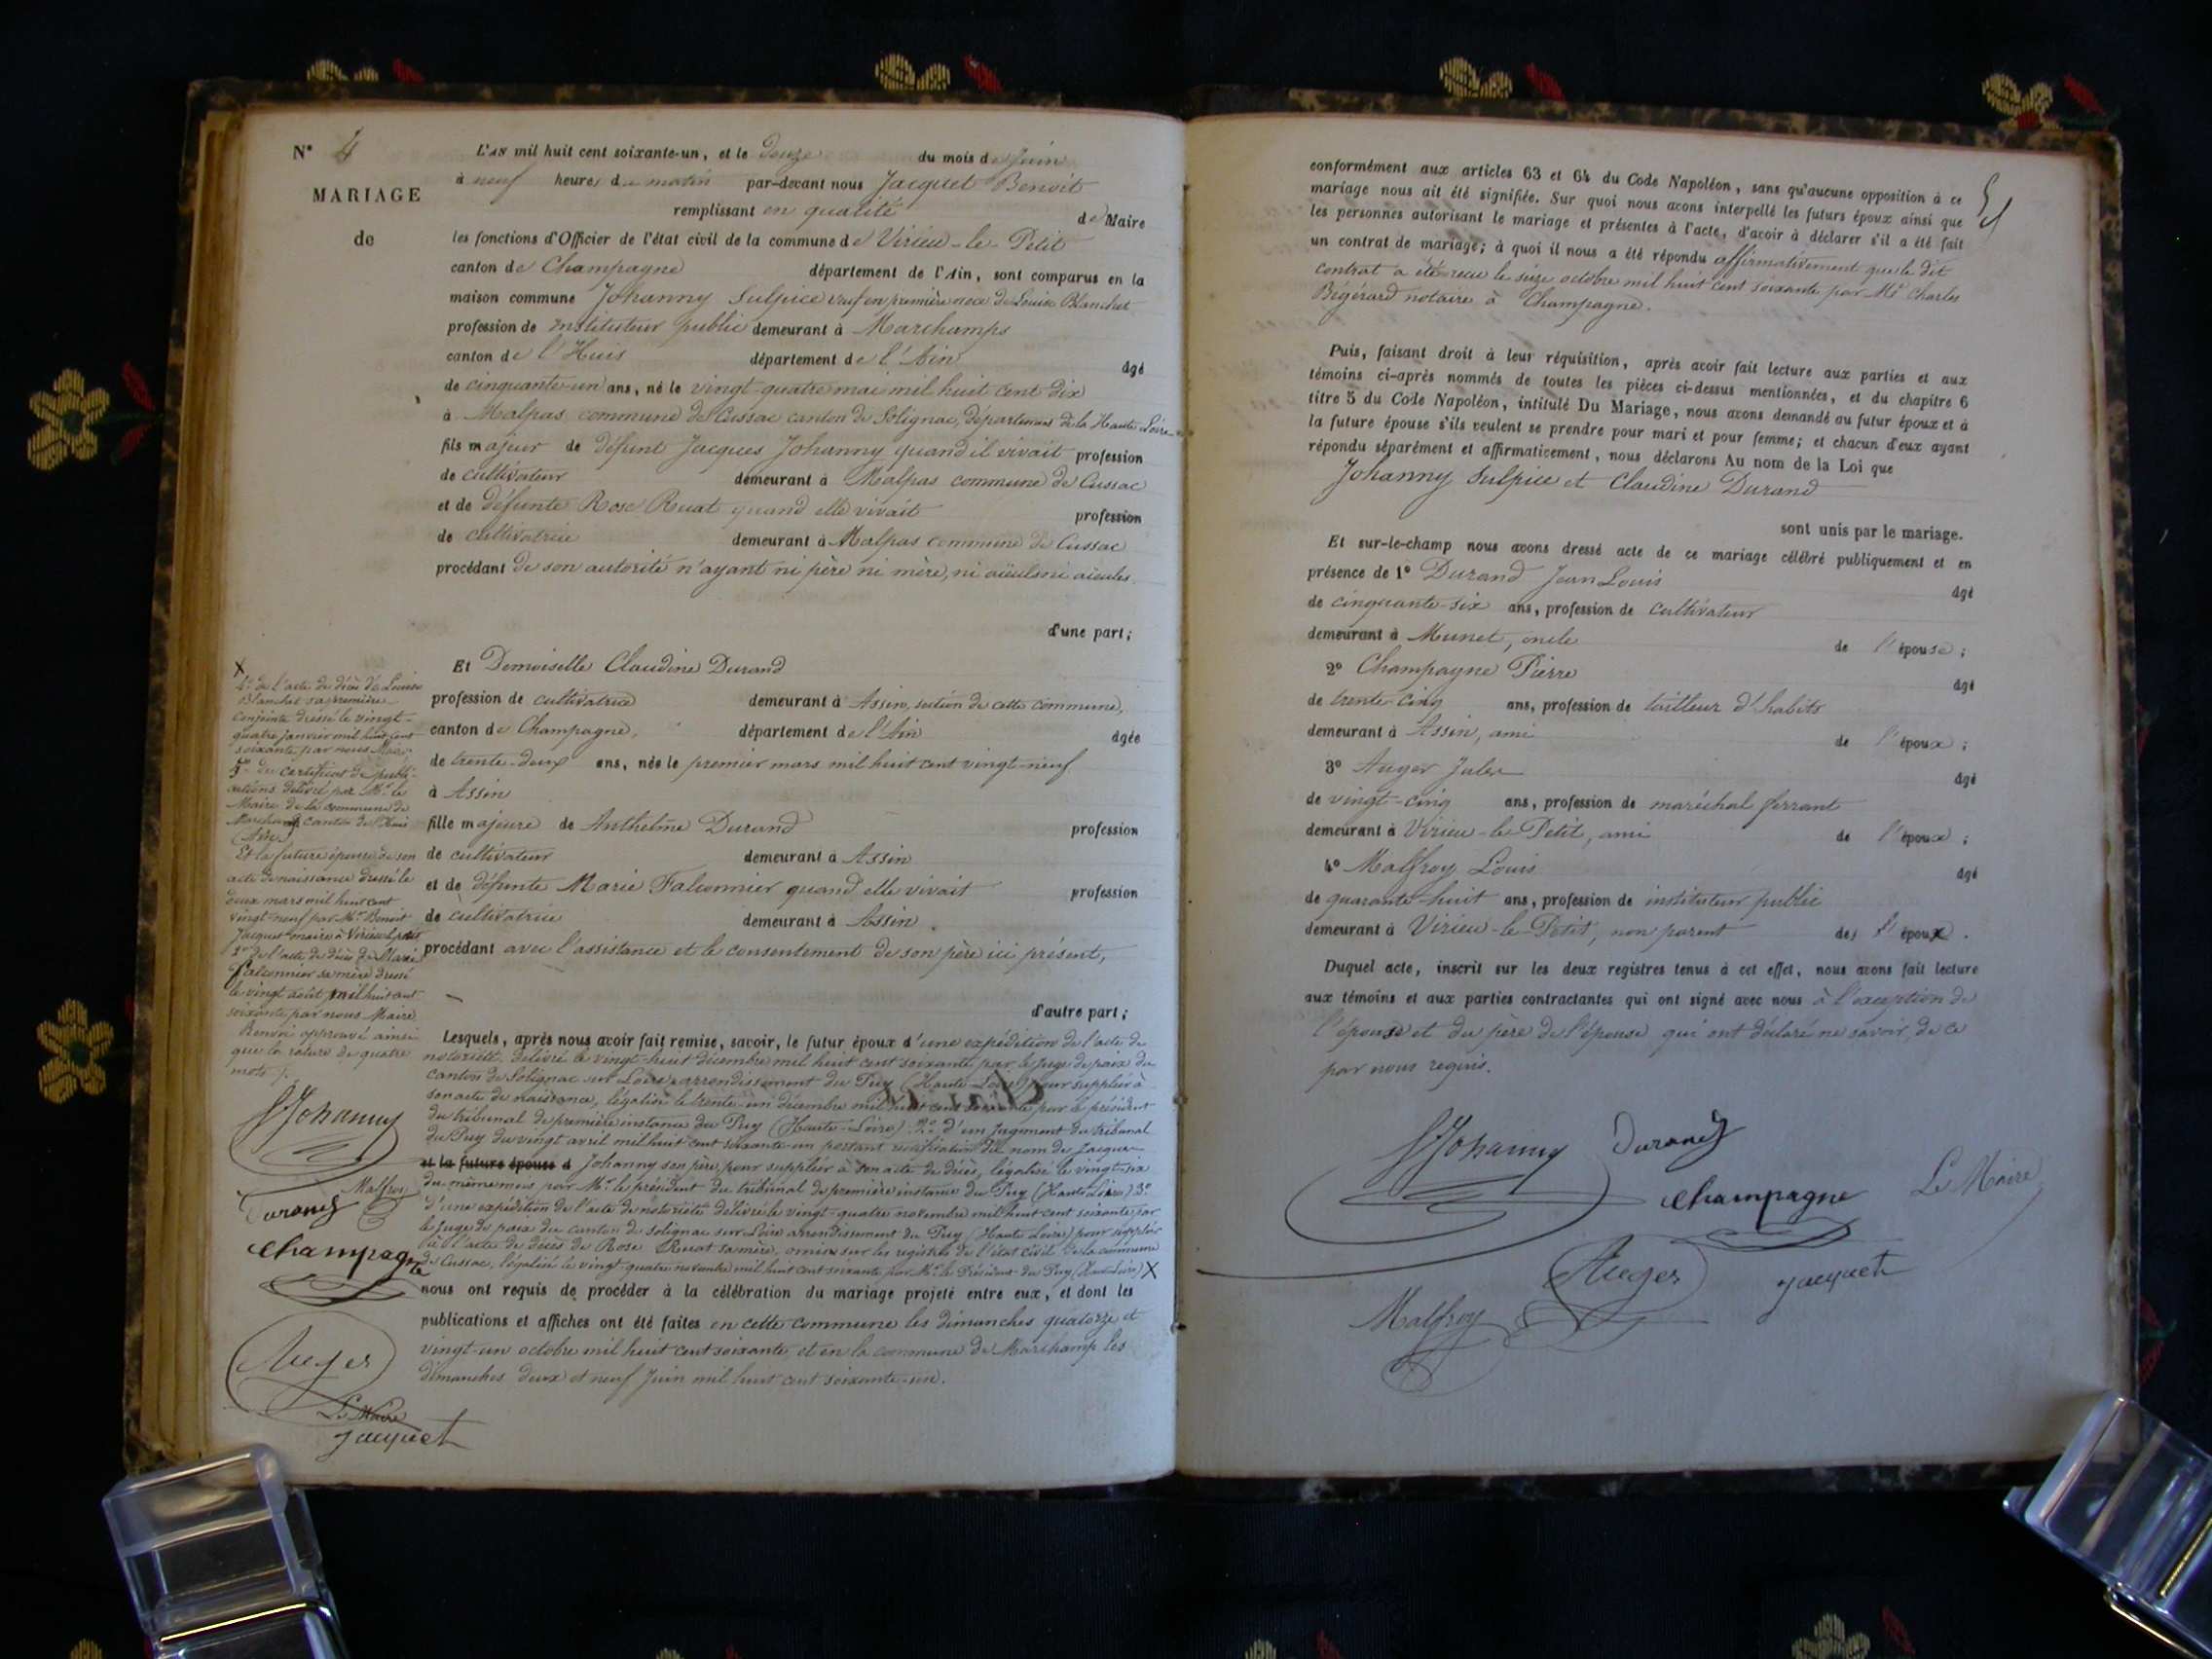 N° 4
MARIAGE
de
L'AN mil huit cent soixante-un, et le douze du mois de Juin
à neuf heures du matin par-devant nous Jacquet Benoit
remplissant en qualité de Maire
les fonctions d'Officier de l'état civil de la commune de Virieu-le-Petit
canton de Champagne département de l'Ain, sont comparus en la
maison commune Johanny Sulpice veuf en première noce de Louise Blanchet
profession de instituteur public demeurant à Marchamps
canton de l'Huis département de l'Ain âgé
de cinquante-un ans, né le vingt-quatre mai mil huit cent dix
à Malpas commune de Cussac canton de Solignac, département de la Haute Loire
fils majeur de défunt Jacques Johanny quand il vivait profession
de cultivateur demeurant à Malpas commune de Cussac
et de défunte Rose Ruat quand elle vivait profession
de cultivatrice demeurant à Malpas commune de Cussac
procédant de son autorité n'ayant ni père ni mère, ni aïeuls ni aïeules.
d'une part;
Et Demoiselle Claudine Durand
profession de cultivatrice demeurant à Assin, section de cette commune,
canton de Champagne, département de l'Ain âgée
de trente-deux ans, née le premier mars mil huit cent vingt-neuf
à Assin
fille majeure de Anthelme Durand profession
de cultivateur demeurant à Assin
et de défunte Marie Falconnier quand elle vivait profession
de cultivatrice demeurant à Assin.
procédant avec l'assistance et le consentement de son père ici présent,
d'autre part;
Lesquels, après nous avoir fait remise, savoir, le futur époux d'une expédition de l'acte de
notoriété délivré le vingt-huit décembre mil huit cent soixante par le juge de paix du
canton de Solignac sur Loire arrondissement du Puy (Haute Loire) pour suppléer à
son acte de naissance, légalisé le trente-un décembre mil huit cent soixante par le président
du tribunal de première instance du Puy (Haute-Loire) 2° d'un jugement du tribunal
du Puy du vingt avril mil huit cent soixante-un portant rectification du nom de Jacques
et la future épouse d Johanny son père, pour suppléer à son acte de décès, légalisé le vingt-six
du même mois par Mr le président du tribunal de première instance du Puy (Haute Loire) 3°
d'une expédition de l'acte de notoriété délivré le vingt-quatre novembre mil huit cent soixante par
le juge de paix du canton de Solignac sur Loire arrondissement du Puy (Haute Loire) pour suppléer
à l'acte de décès de Rose Ruat sa mère, omis sur les registres de l'état civil de la commune
de Cussac, légalisé le vingt-quatre novembre mil huit cent soixante par Mr le Président du Puy (Haute Loire) X
nous ont requis de procéder à la célébration du mariage projeté entre eux, et dont les
publications et affiches ont été faites en cette commune les dimanches quatorze et
vingt-un octobre mil huit cent soixante, et en la commune de Marchamp les
dimanches deux et neuf Juin mil huit cent soixante-un.
X
4° de l'acte de décès de Louise
Blanchet sa première
conjointe dressé le vingt-
quatre janvier mil huit cent
soixante, par nous Maire.
5° du certificat de publi-
cations délivré par Mr le
Maire de la commune de
Marchamp canton de l'Huis
(Ain)
Et la future épouse de son
acte de naissance dressé le
deux mars mil huit cent
vingt-neuf par Mr Benoit
Jacquet maire à Virieu-l-petit
2° de l'acte de décès de Marie
Falconnier sa mère dressé
le vingt août mil huit cent
soixante, par nous Maire
Renvoi approuvé ainsi
que la rature de quatre
mots
SJohanny
Malfroy
Durand
Champagne
Auger
Le Maire
Jacquet
5
conformément aux articles 63 et 64 du Code Napoléon, sans qu'aucune opposition à ce
mariage nous ait été signifiée. Sur quoi nous avons interpellé les futurs époux ainsi que
les personnes autorisant le mariage et présentes à l'acte, d'avoir à déclarer s'il a été fait
un contrat de mariage; à quoi il nous a été répondu affirmativement que le dit
contrat a été reçu le seize octobre mil huit cent soixante par Me Charles
Bégérard notaire à Champagne.
Puis, faisant droit à leur réquisition, après avoir fait lecture aux parties et aux
témoins ci-après nommés de toutes les pièces ci-dessus mentionnées, et du chapitre 6
titre 5 du Code Napoléon, intitulé Du Mariage, nous avons demandé au futur époux et à
la future épouse s'ils veulent se prendre pour mari et pour femme; et chacun d'eux ayant
répondu séparément et affirmativement, nous déclarons Au nom de la Loi que
Johanny Sulpice et Claudine Durand
sont unis par le mariage.
Et sur-le-champ nous avons dressé acte de ce mariage célébré publiquement et en
présence de 1° Durand Jean Louis âgé
de cinquante-six ans, profession de cultivateur
demeurant à Munet, oncle de l'épouse;
2° Champagne Pierre âgé
de trente-cinq ans, profession de tailleur d'habits
demeurant à Assin, ami de l'époux;
3° Auger Jules âgé
de vingt-cinq ans, profession de maréchal ferrant
demeurant à Virieu-le-Petit, ami de l'époux;
4° Malfroy Louis âgé
de quarante-huit ans, profession de instituteur public
demeurant à Virieu-le-Petit, non parent de l'époux.
Duquel acte, inscrit sur les deux registres tenus à cet effet, nous avons fait lecture
aux témoins et aux parties contractantes qui ont signé avec nous à l'exception de
l'épouse et du père de l'épouse qui ont déclaré ne savoir, de ce
par nous requis.
SJohanny Durand
Champagne Le Maire
Auger Jacquet
Malfroy